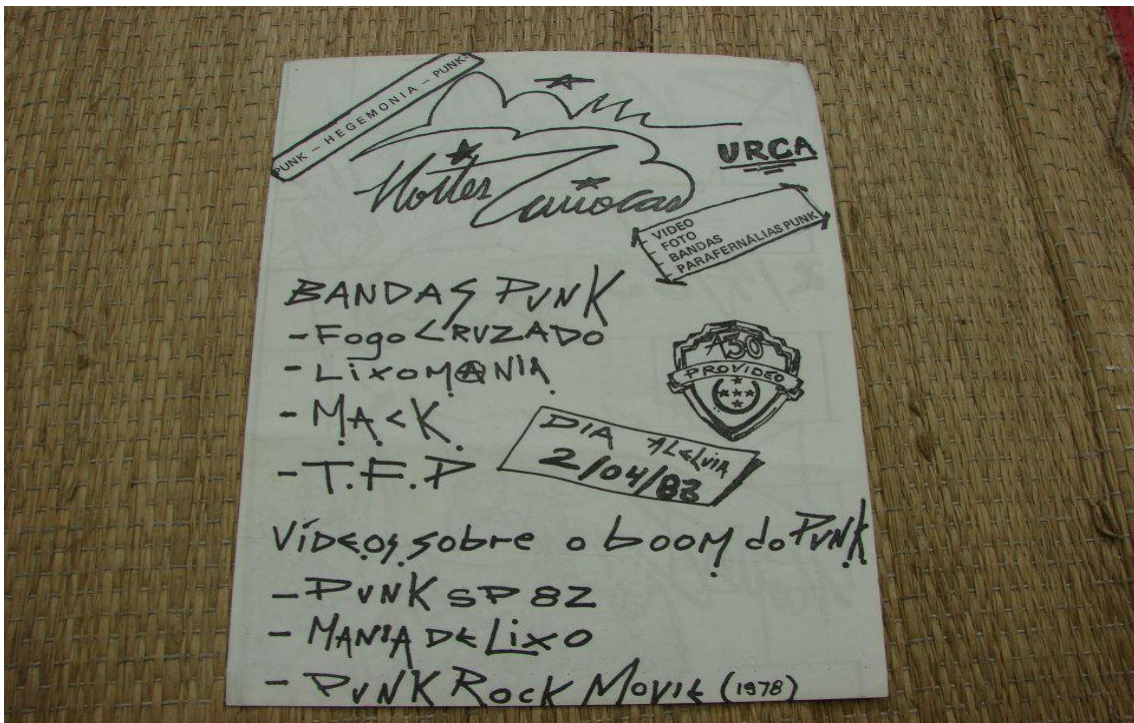 PUNK – HEGEMONIA – PUNK
Noites Cariocas
URCA
VIDEO
FOTO
BANDAS
PARAFERNÁLIAS PUNK
BANDAS PUNK
- FOGO CRUZADO
- LIXOMANIA
- M.A.C.K.
- T.F.P
A30
PROVIDEO
DIA ALELUIA
2/04/83
VÍDEOS sobre o boom do PUNK
- PUNK SP 82
- MANIA DE LIXO
- PUNK ROCK MOVIE (1978)